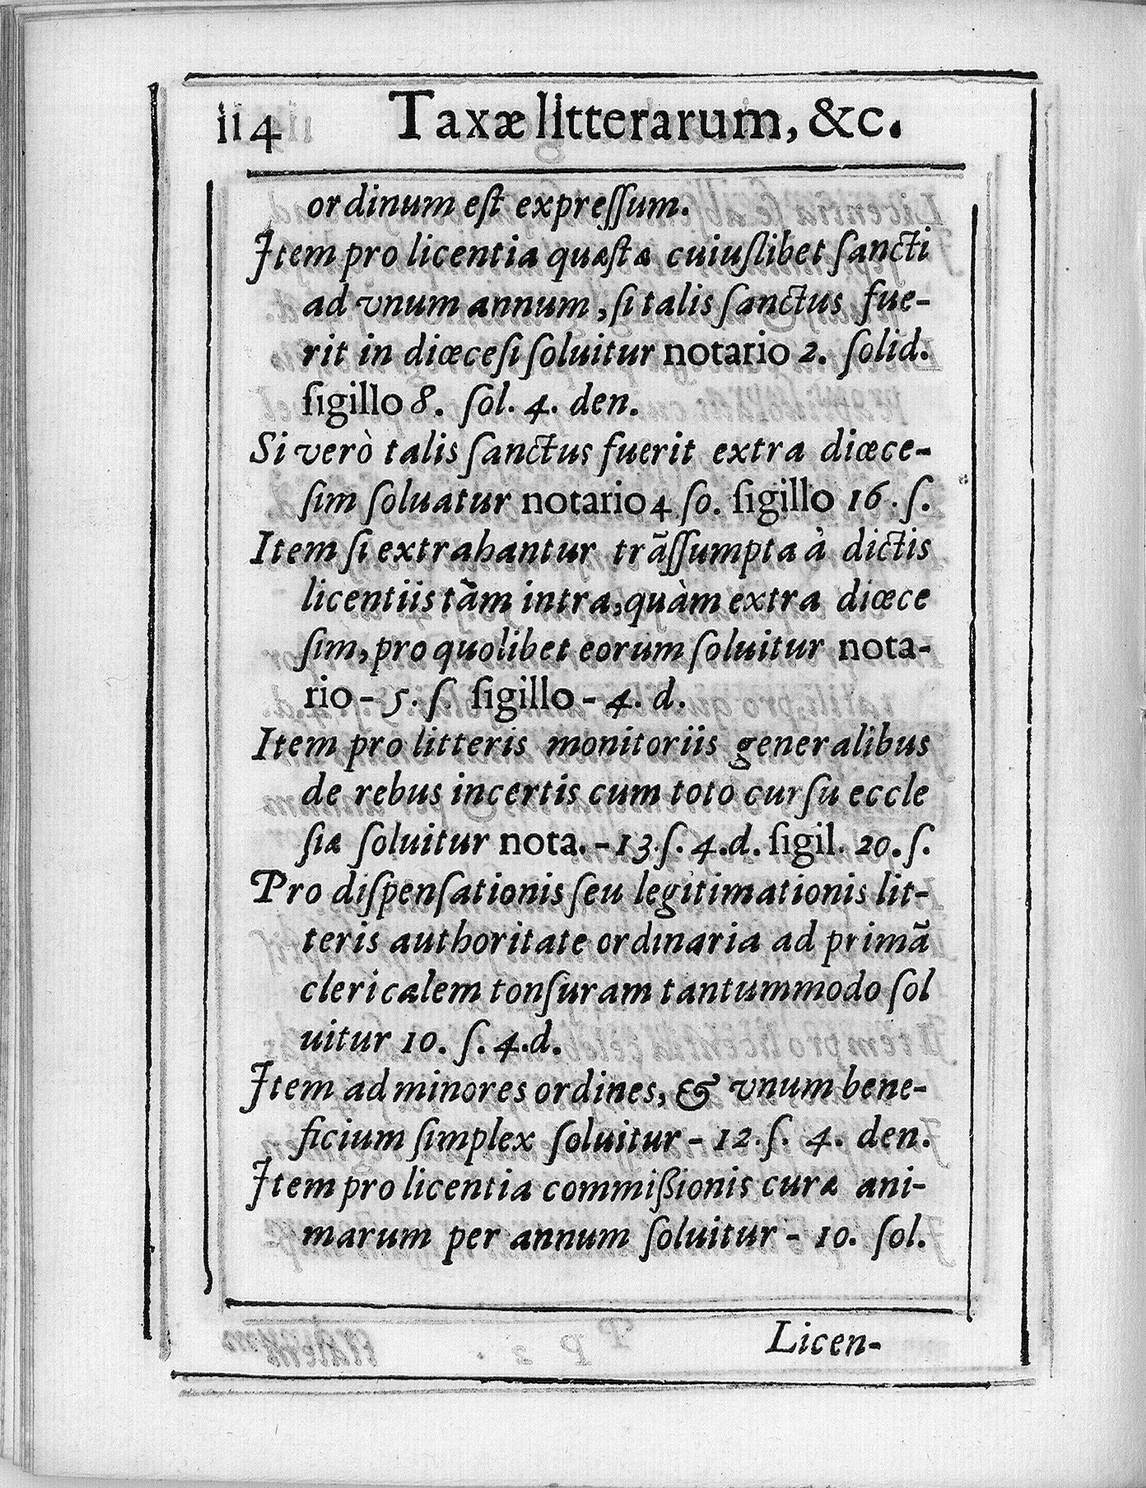 114 Taxæ litterarum, &c.
ordinum eſt expreſſum.
Item pro licentia quæſtæ cuiuſlibet ſancti
ad vnum annum, ſi talis ſanctus fue-
rit in diœceſi ſoluitur notario 2. ſolid.
ſigillo 8. ſol. 4. den.
Si verò talis ſanctus fuerit extra diœce-
ſim ſoluatur notario 4 ſo. ſigillo 16. ſ.
Item ſi extrahantur trãſſumpta à dictis
licentiis tàm intra, quàm extra diœce
ſim, pro quolibet eorum ſoluitur nota-
rio - 5. ſ. ſigillo - 4. d.
Item pro litteris monitoriis generalibus
de rebus incertis cum toto curſu eccle
ſiæ ſoluitur nota. - 13 ſ. 4. d. ſigil. 20. ſ.
Pro diſpenſationis ſeu legitimationis lit-
teris authoritate ordinaria ad primã
clericalem tonſuram tantummodo ſol
uitur 10. ſ. 4. d.
Item ad minores ordines, & vnum bene-
ficium ſimplex ſoluitur - 12. ſ. 4. den.
Item pro licentia commiſſionis curæ ani-
marum per annum ſoluitur - 10. ſol.
Licen-